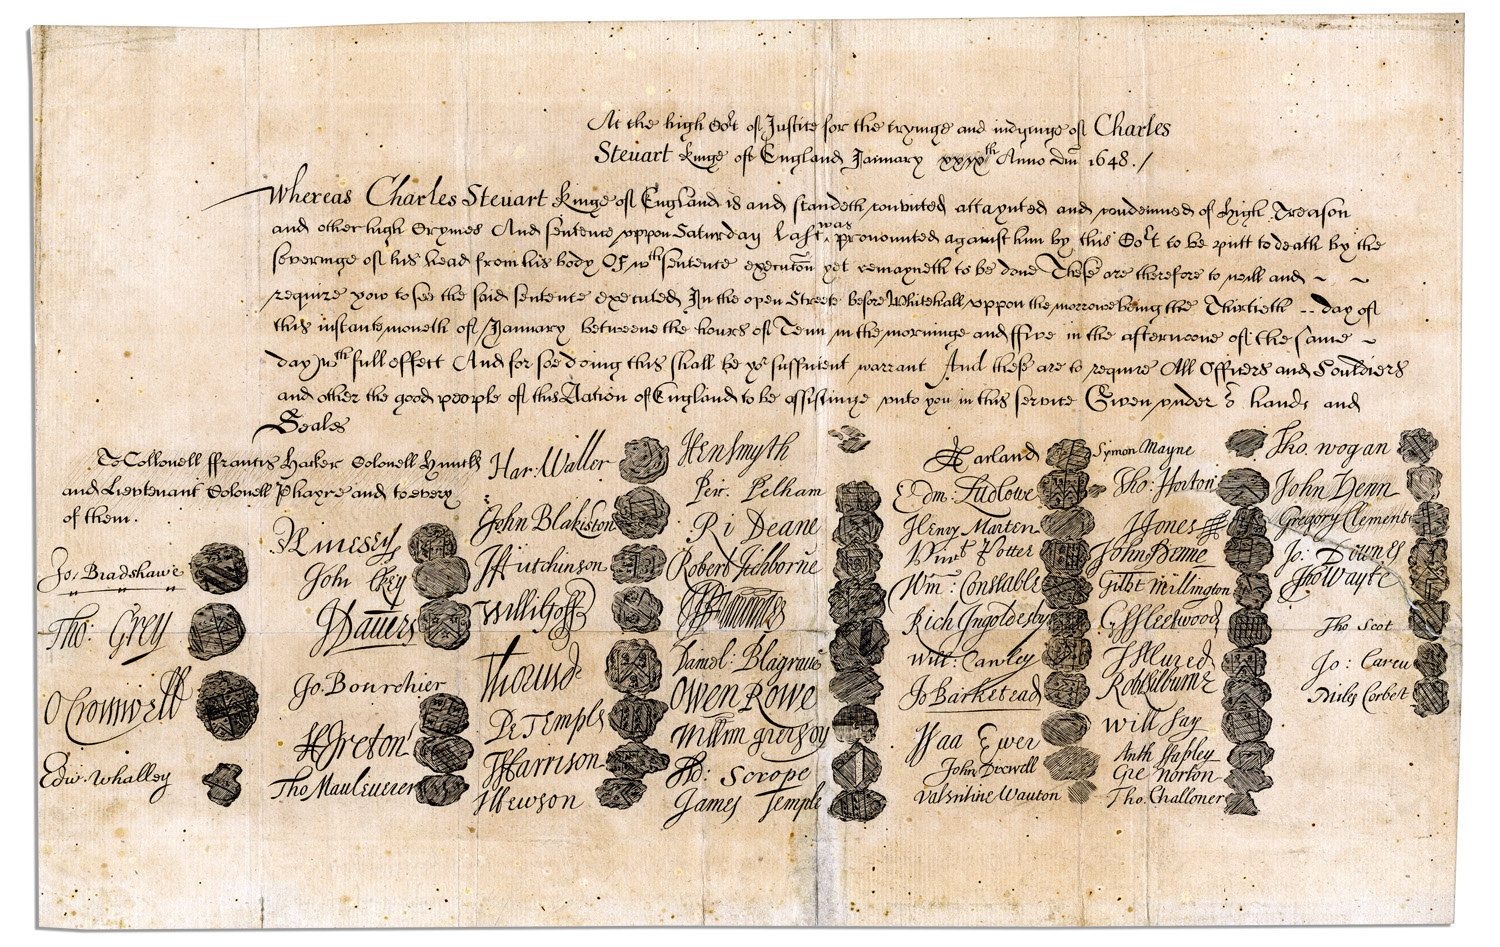 At the high Cort of Justice for the tryinge and iudginge of Charles
Steuart Kinge of England January xxixth Anno Dm̃ 1648./
Whereas Charles Steuart Kinge of England is and standeth convicted attaynted and condemned of High Treason
and other high Crymes And sentence uppon Saturday last was pronounced against him by this Cort to be putt to death by the
severinge of his head from his body Of wch sentence execucõn yet remayneth to be done These are therefore to will and ~ ~
require yow to see the said sentence executed In the open Streete before Whitehall uppon the morrowe being the Thirtieth -- day of
this instante moneth of January betweene the hours of Tenn in the morninge and ffive in the afternoone of the same ~
day wth full effect And for soe doing this shall be yor sufficient warrant And these are to require All Officers and Souldiers
and other the good people of this Nation of England to be assistinge unto you in this service Given under or hands and
Seales
To Collonell ffrancis Hacker Colonell Huncks
and Lieutenant Colonell Phayre and to every
of them.
Jo: Bradshawe
Tho: Grey
O Cromwell
Edw: Whalley
M Livesey
John Okey
J Dauers
Jo: Bourchier
H Ireton
Tho Mauleuerer
Har: Waller
John Blakiston
J Hutchinson
Willi Goff
Tho Pride
Pe Temple
T Harrison
J Hewson
Hen Smyth
Per: Pelham
Ri Deane
Robert Tichborne
Daniel: Blagraue
Owen Rowe
Willm Purefoy
Ad: Scrope
James Temple
A Garland
Edm: Ludlowe
Henry Marten
Vint Potter
Wm: Constable
Rich Ingoldesby
Will: Cawley
Jo Barkestead
Isaa Ewer
John Dixwell
Valentine Wauton
Symon Mayne
Tho: Horton
J Jones
John Penne
Gilbt Millington
G ffleetwood
J Alured
Rob Lilburne
Will Say
Anth Stapley
Gre Norton
Tho. Challoner
Tho: Wogan
John Venn
Gregory Clement
Jo: Downes
Tho Wayte
Tho Scot
Jo: Carew
Miles Corbet